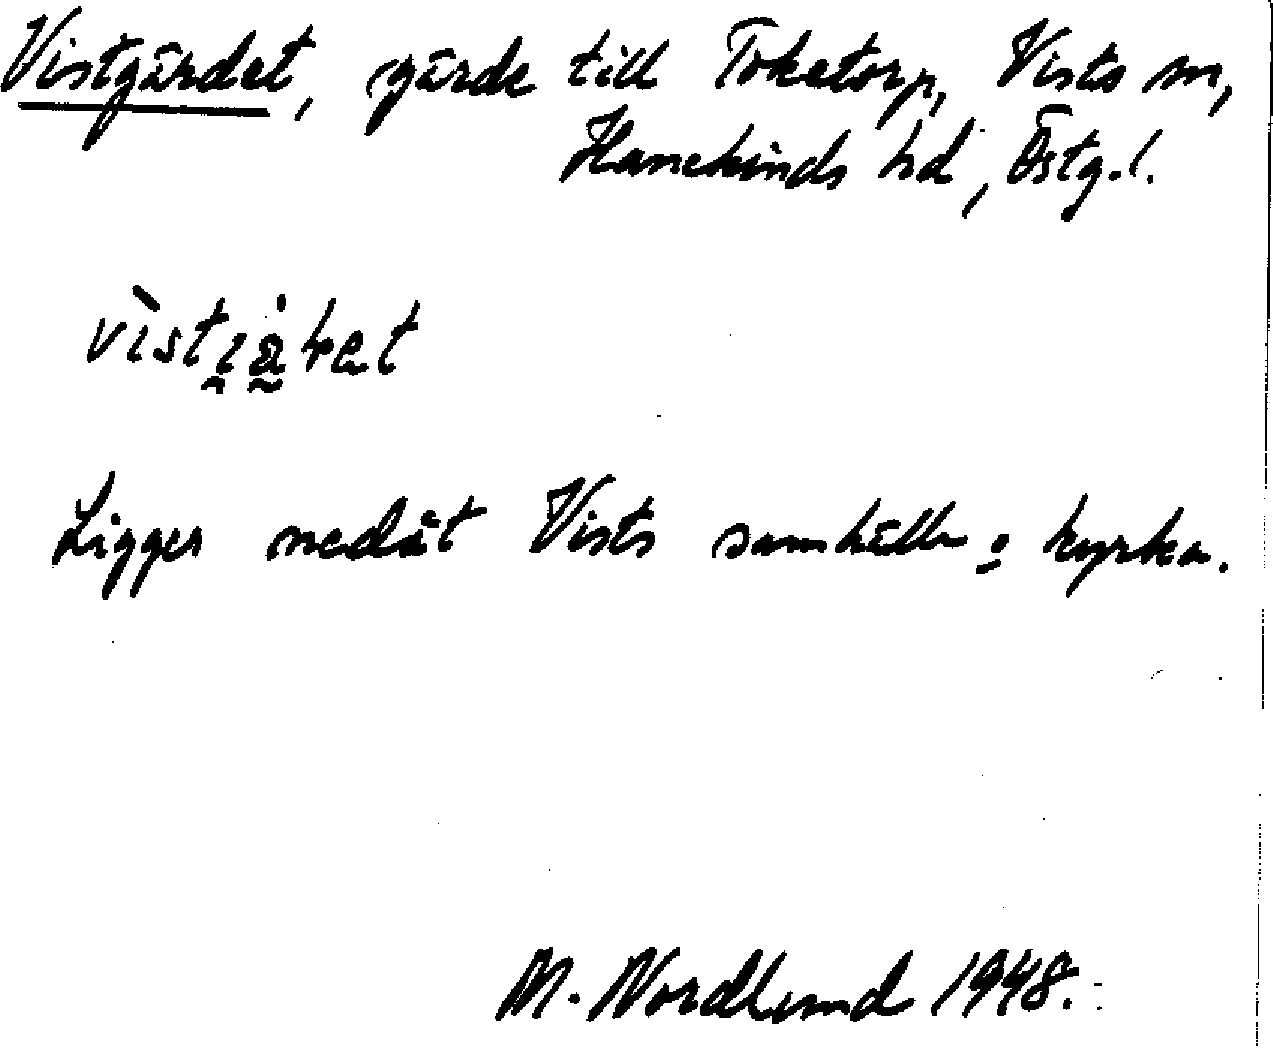 Vistgärdet, gärde till Toketorp, Vists sn,
Hanekinds hd, Östg.l.
Ligger nedåt Vists samhälle o kyrka.
M. Nordlund 1948.